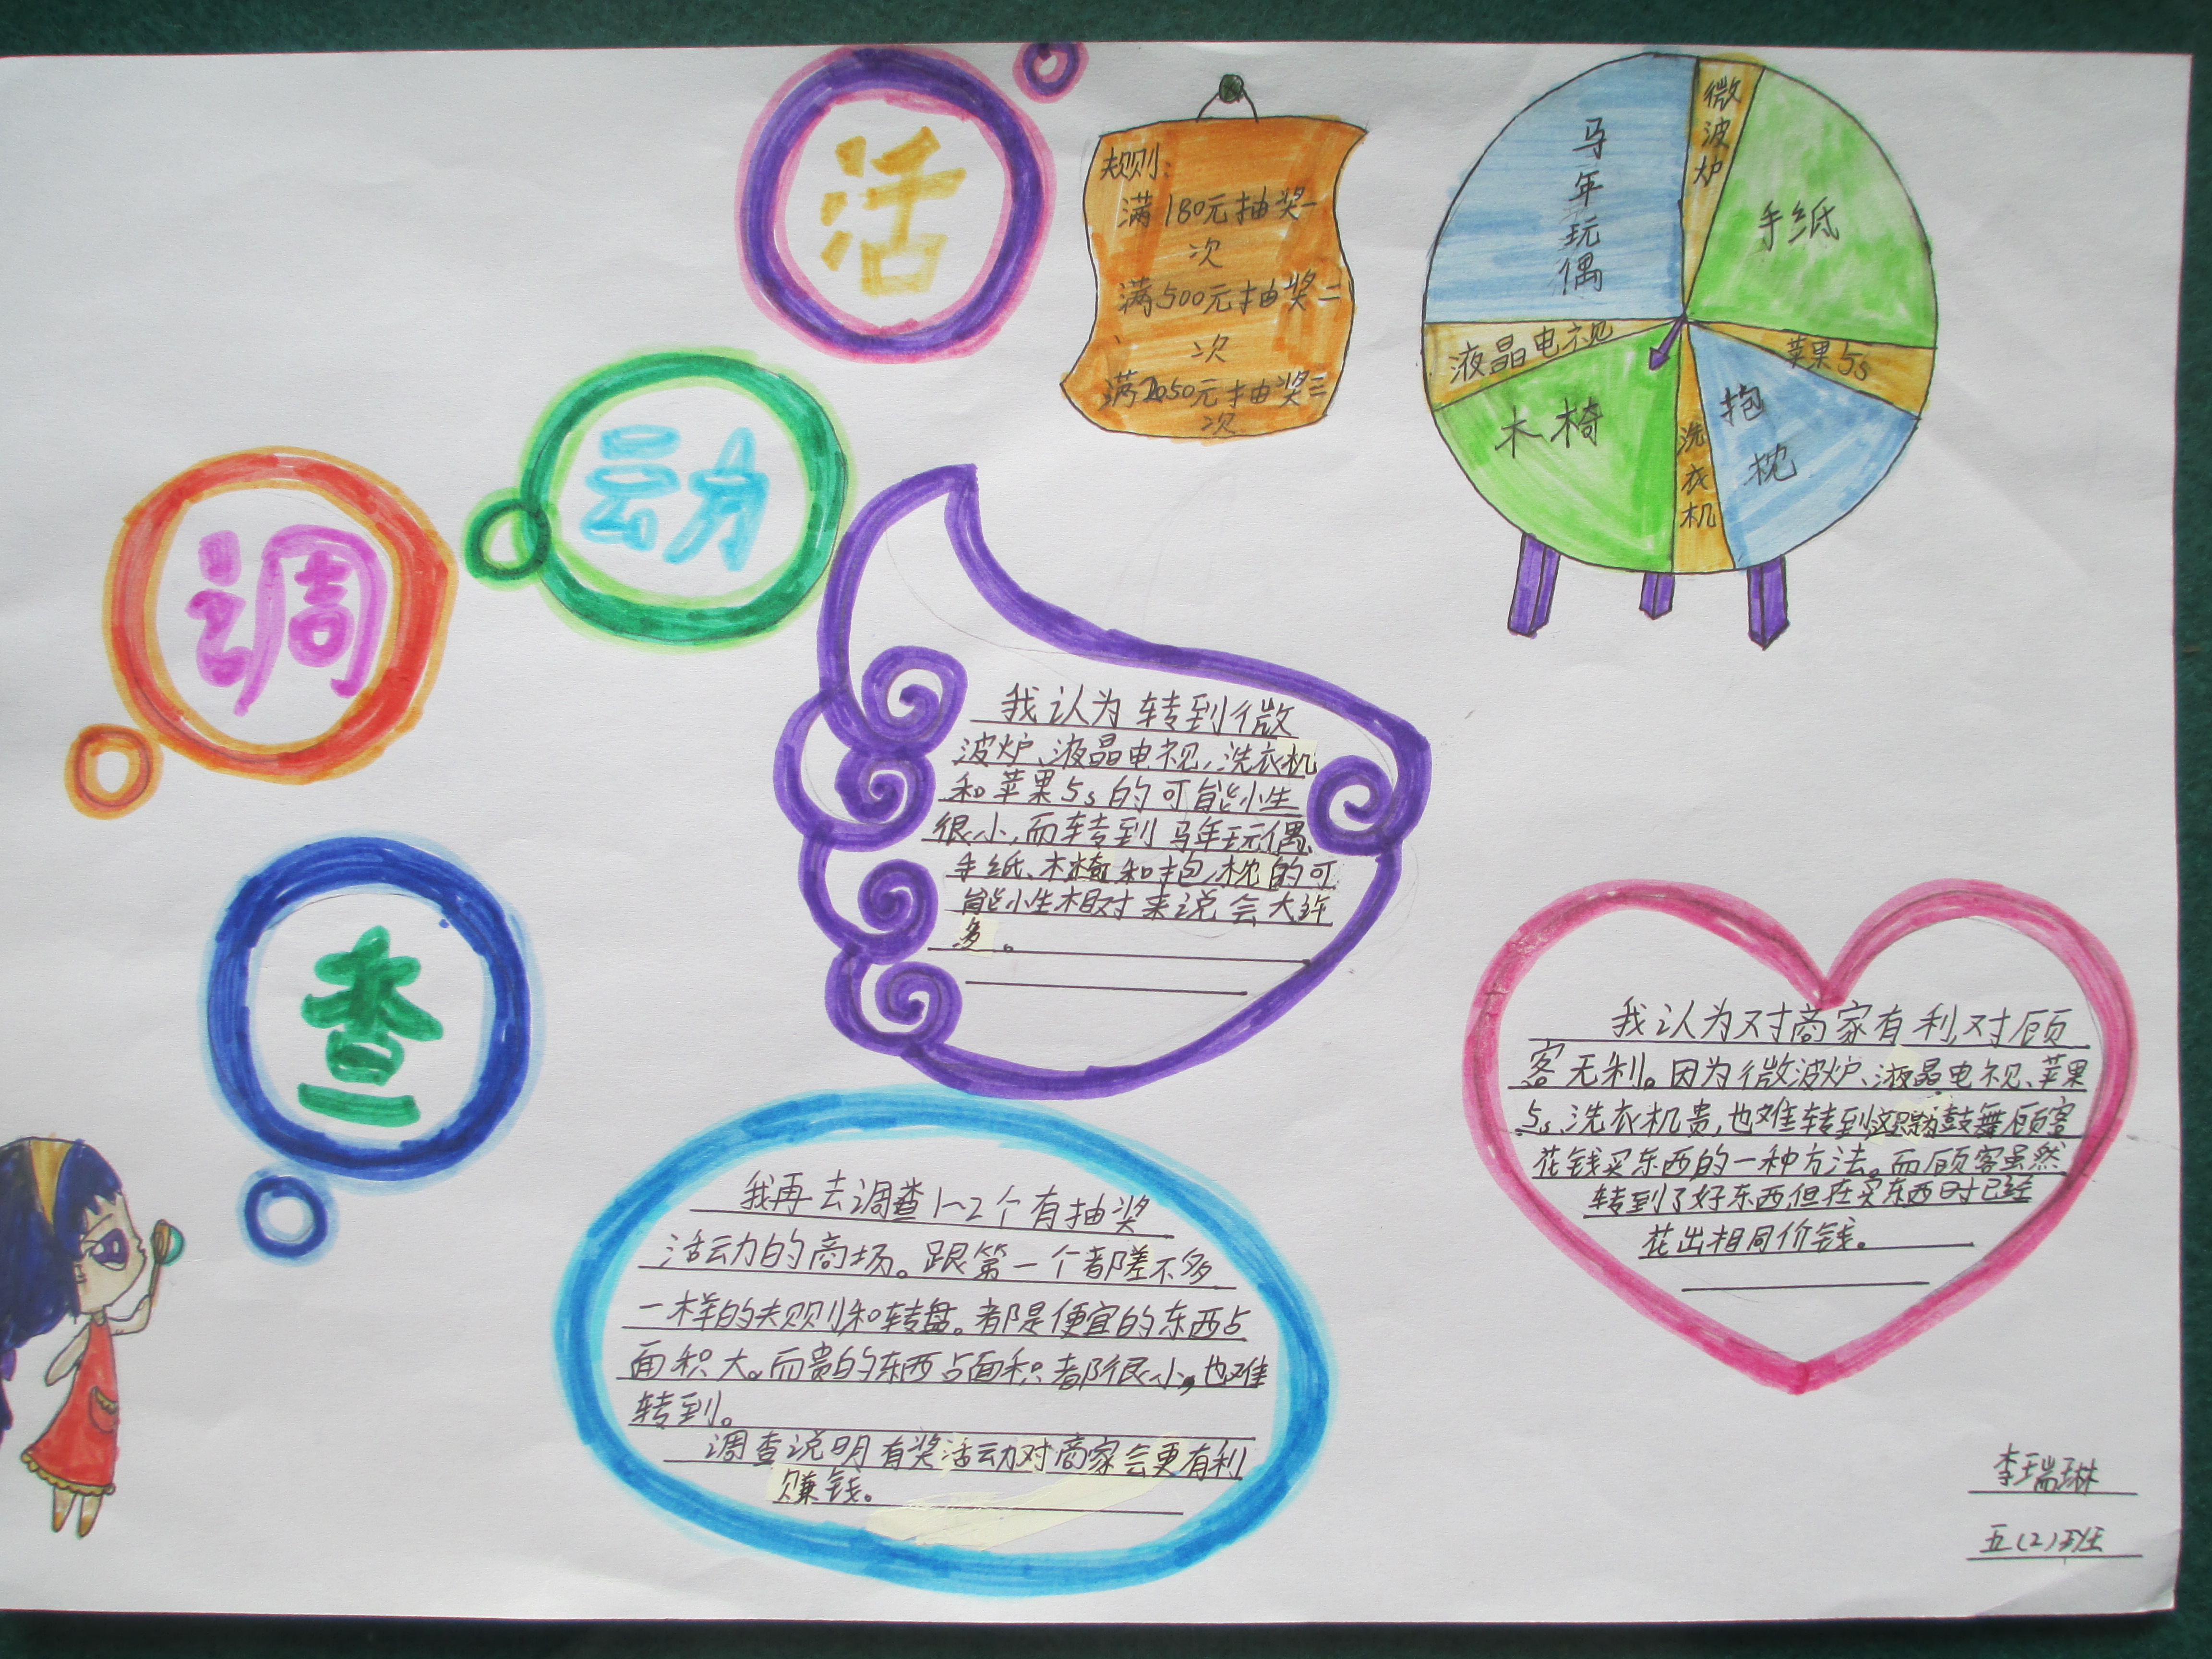 活
动
调
查
规则:
满180元抽奖一
次
满500元抽奖二
次
满1050元抽奖三
次
马年玩偶
微波炉
手纸
苹果5s
抱枕
洗衣机
木椅
液晶电视
我认为转到微
波炉、液晶电视、洗衣机
和苹果5s的可能小生
很小,而转到马年玩偶、
手纸、木椅和抱枕的可
能小生相对来说会大许
多。
我认为对商家有利,对顾
客无利。因为微波炉、液晶电视、苹果
5s、洗衣机贵,也难转到,这只是为鼓舞顾客
花钱买东西的一种方法。而顾客虽然
转到了好东西,但在买东西时已经
花出相同价钱。
我再去调查1~2个有抽奖
活动的商场。跟第一个都差不多
一样的规则和转盘。都是便宜的东西占
面积大。而贵的东西占面积都很小,也难
转到。
调查说明有奖活动对商家会更有利
赚钱。
李瑞琳
五(2)班